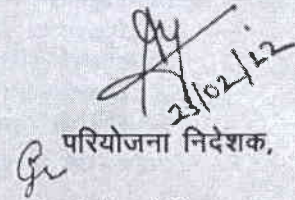 23/02/22
परियोजना निदेशक,